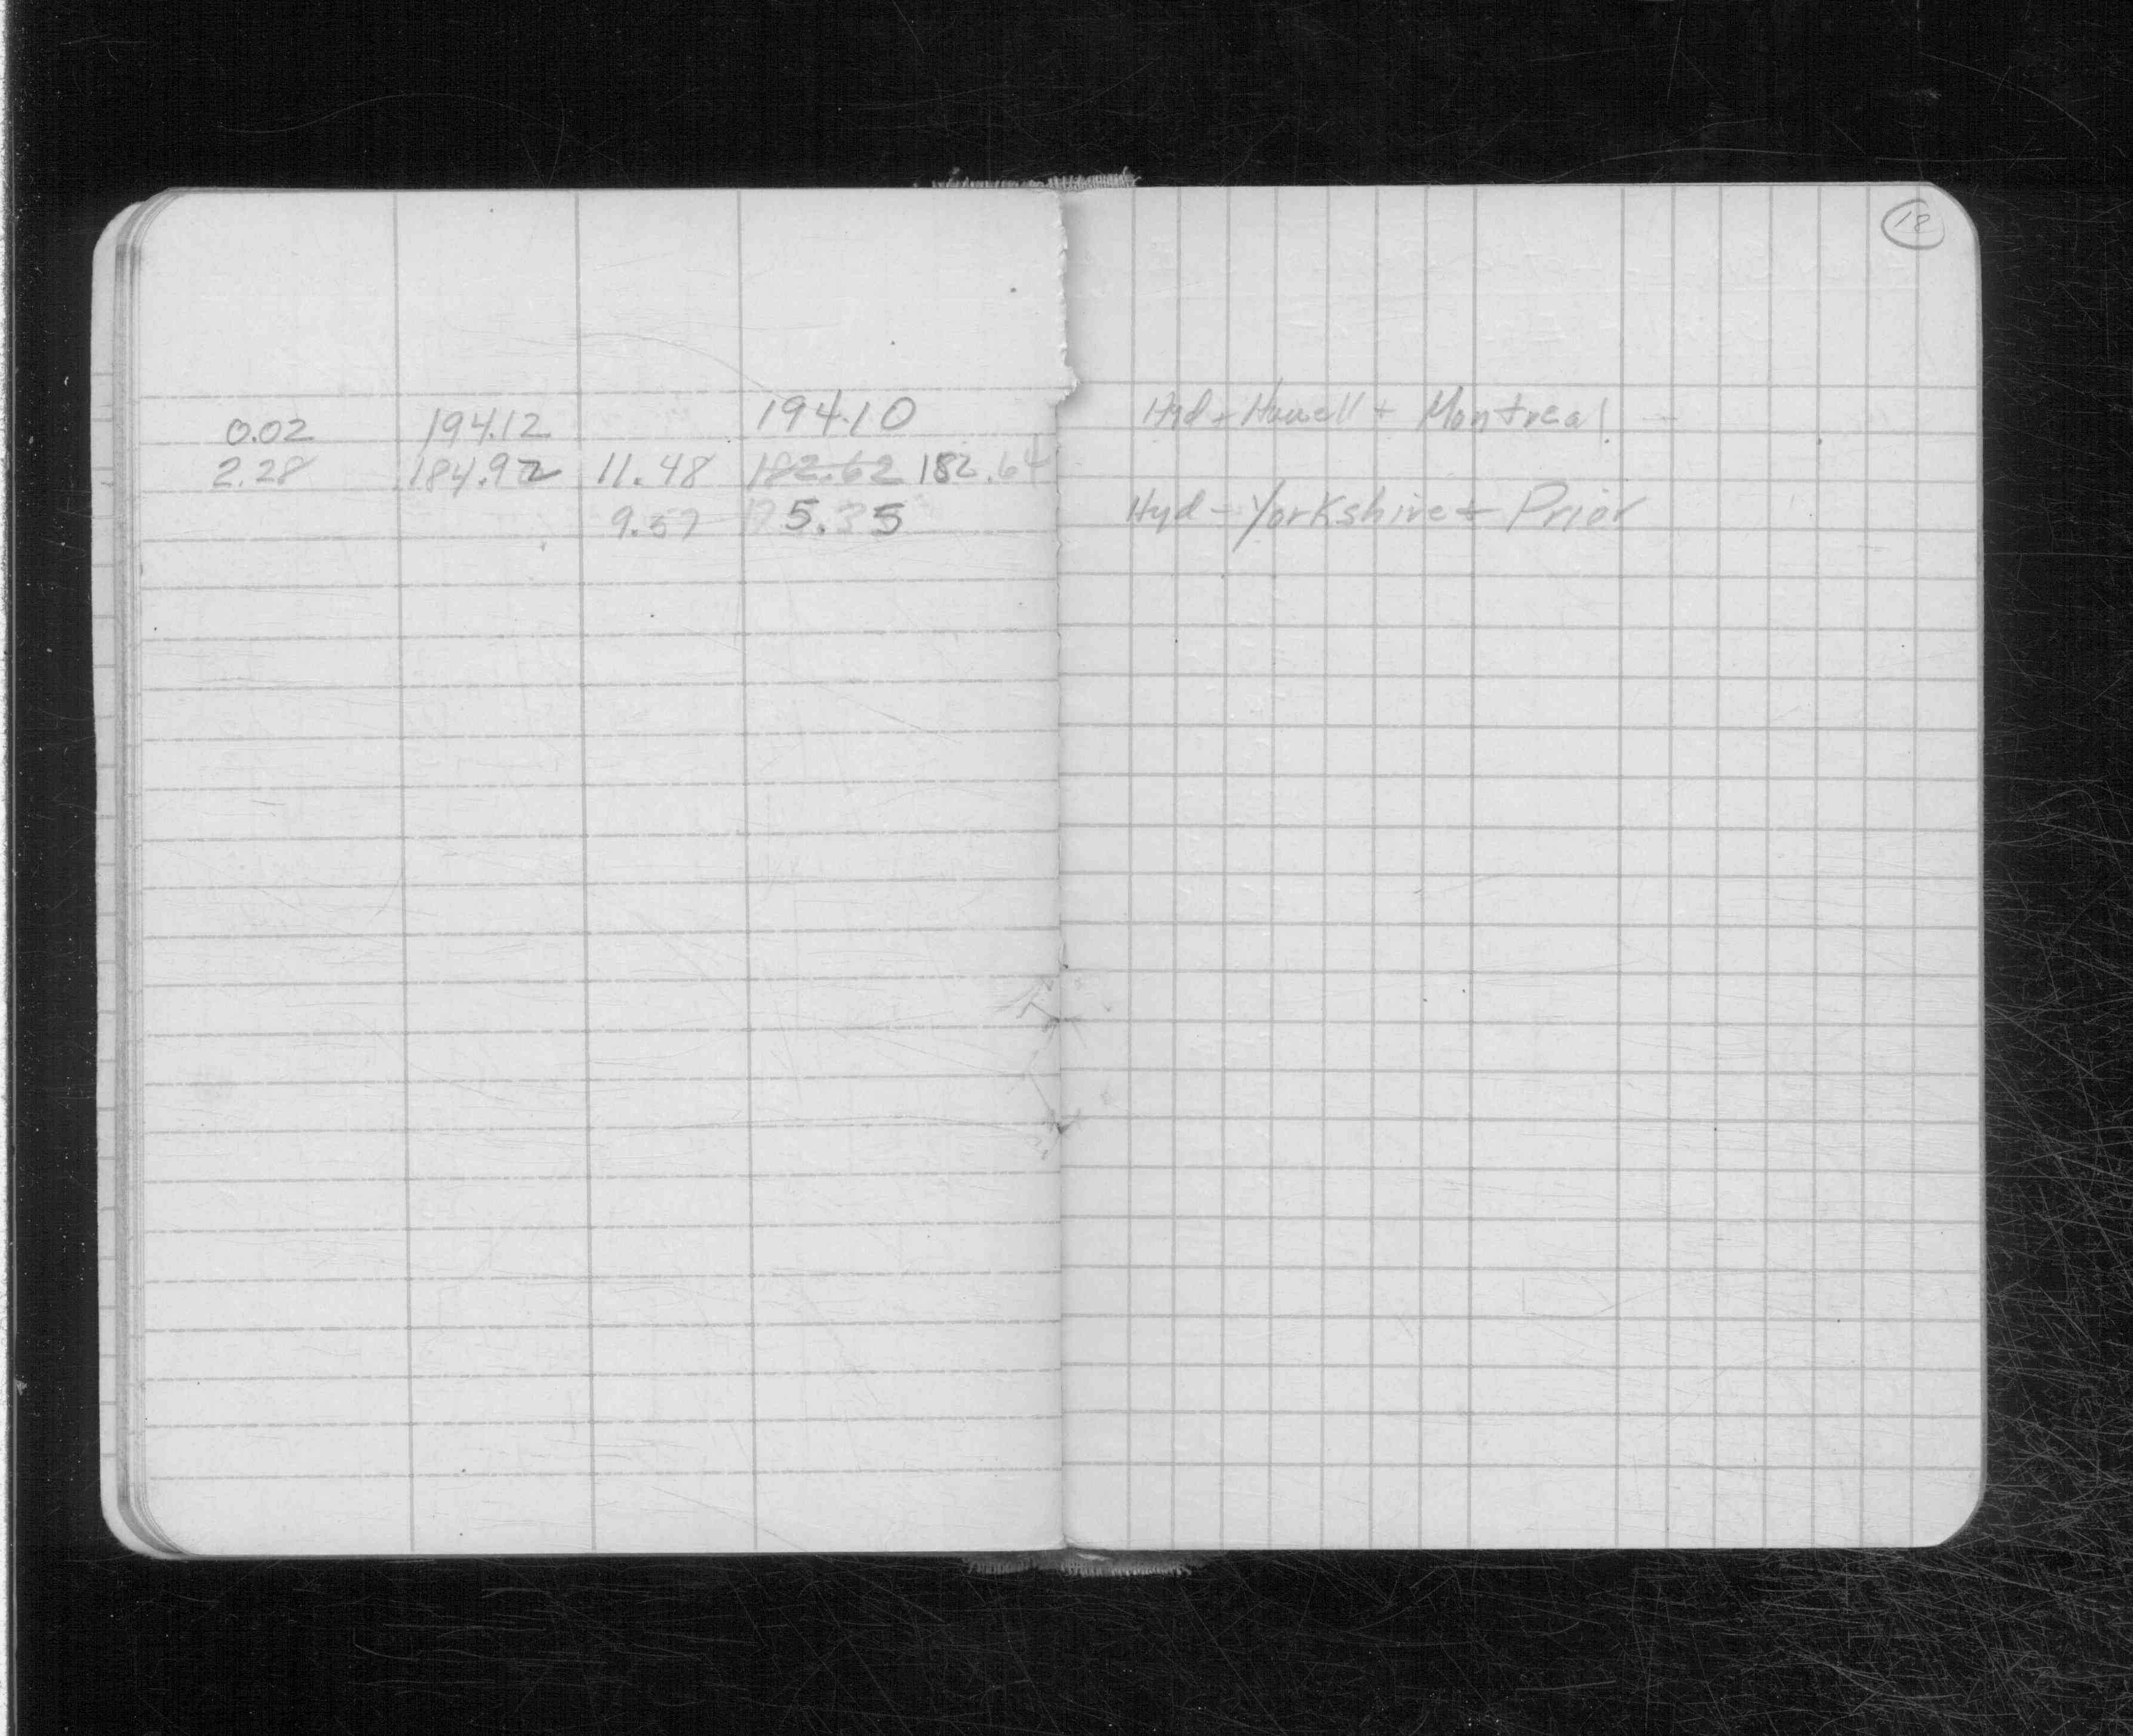 12
0.02 194.12 194.10 Hyd - Howell + Montreal
2.28 184.92 11.48 182.62 182.64
9.57 175.35 Hyd - Yorkshire + Prior